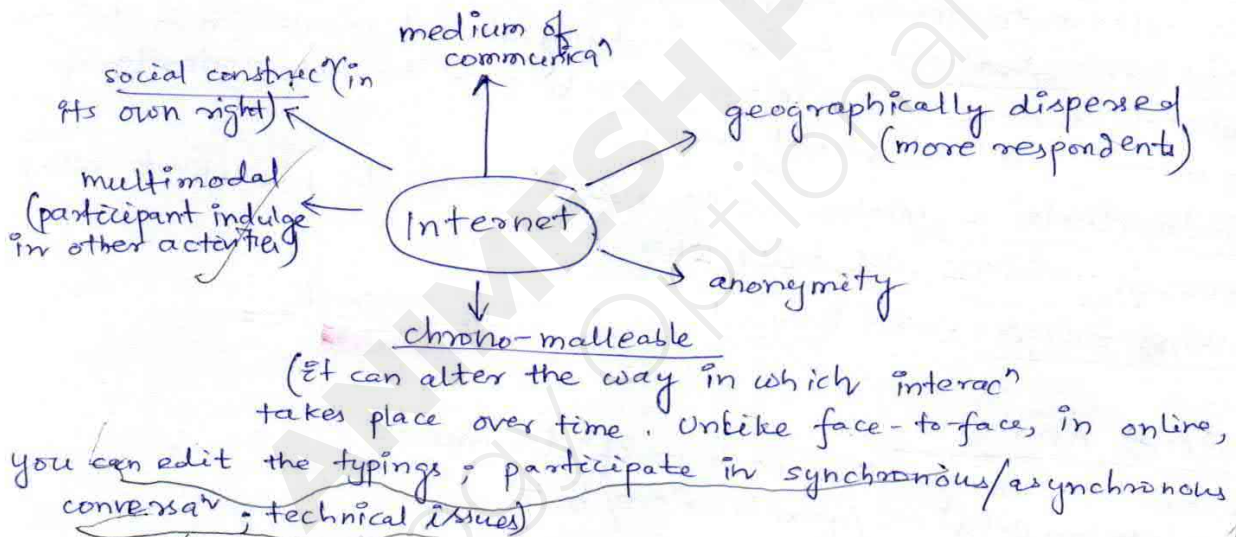 medium of
communicaⁿ
social construcⁿ (in
its own right)
geographically dispersed
(more respondents)
multimodal
(participant indulge
in other activities)
Internet
anonymity
chrono-malleable
(it can alter the way in which interacⁿ
takes place over time. Unlike face-to-face, in online,
you can edit the typings; participate in synchronous/asynchronous
conversaⁿ; technical issues)
ANIMESH
Optional